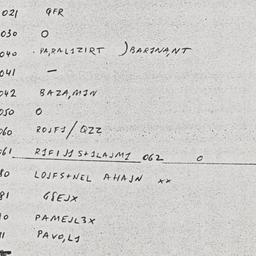 021 GFR
030 0
040 . PARALIZIRT ) BARINANT
041 -
042 BAZA, MIN
050 0
060 ROJFI / QZZ
061 062 0
80 LOJFS+NEL AHAJN xx
81 GSEJX
10 PAMEJL3X
11 PAVO, L1